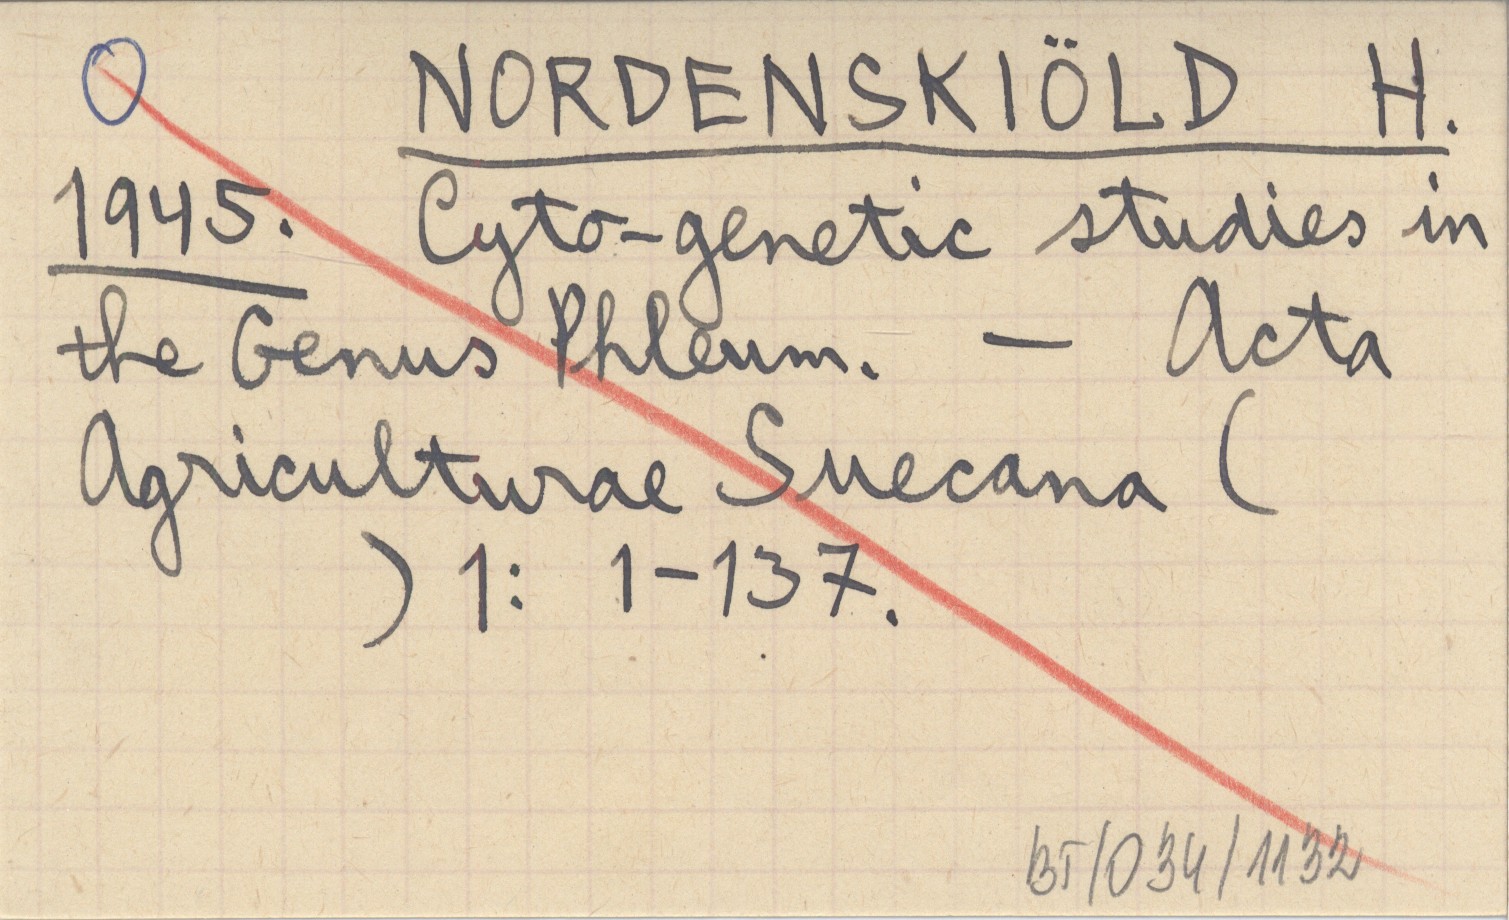 NORDENSKIÖLD H.
1945. Cyto-genetic studies in
the Genus Phleum. — Acta
Agriculturae Suecana (
) 1: 1-137.
BT/034/1132